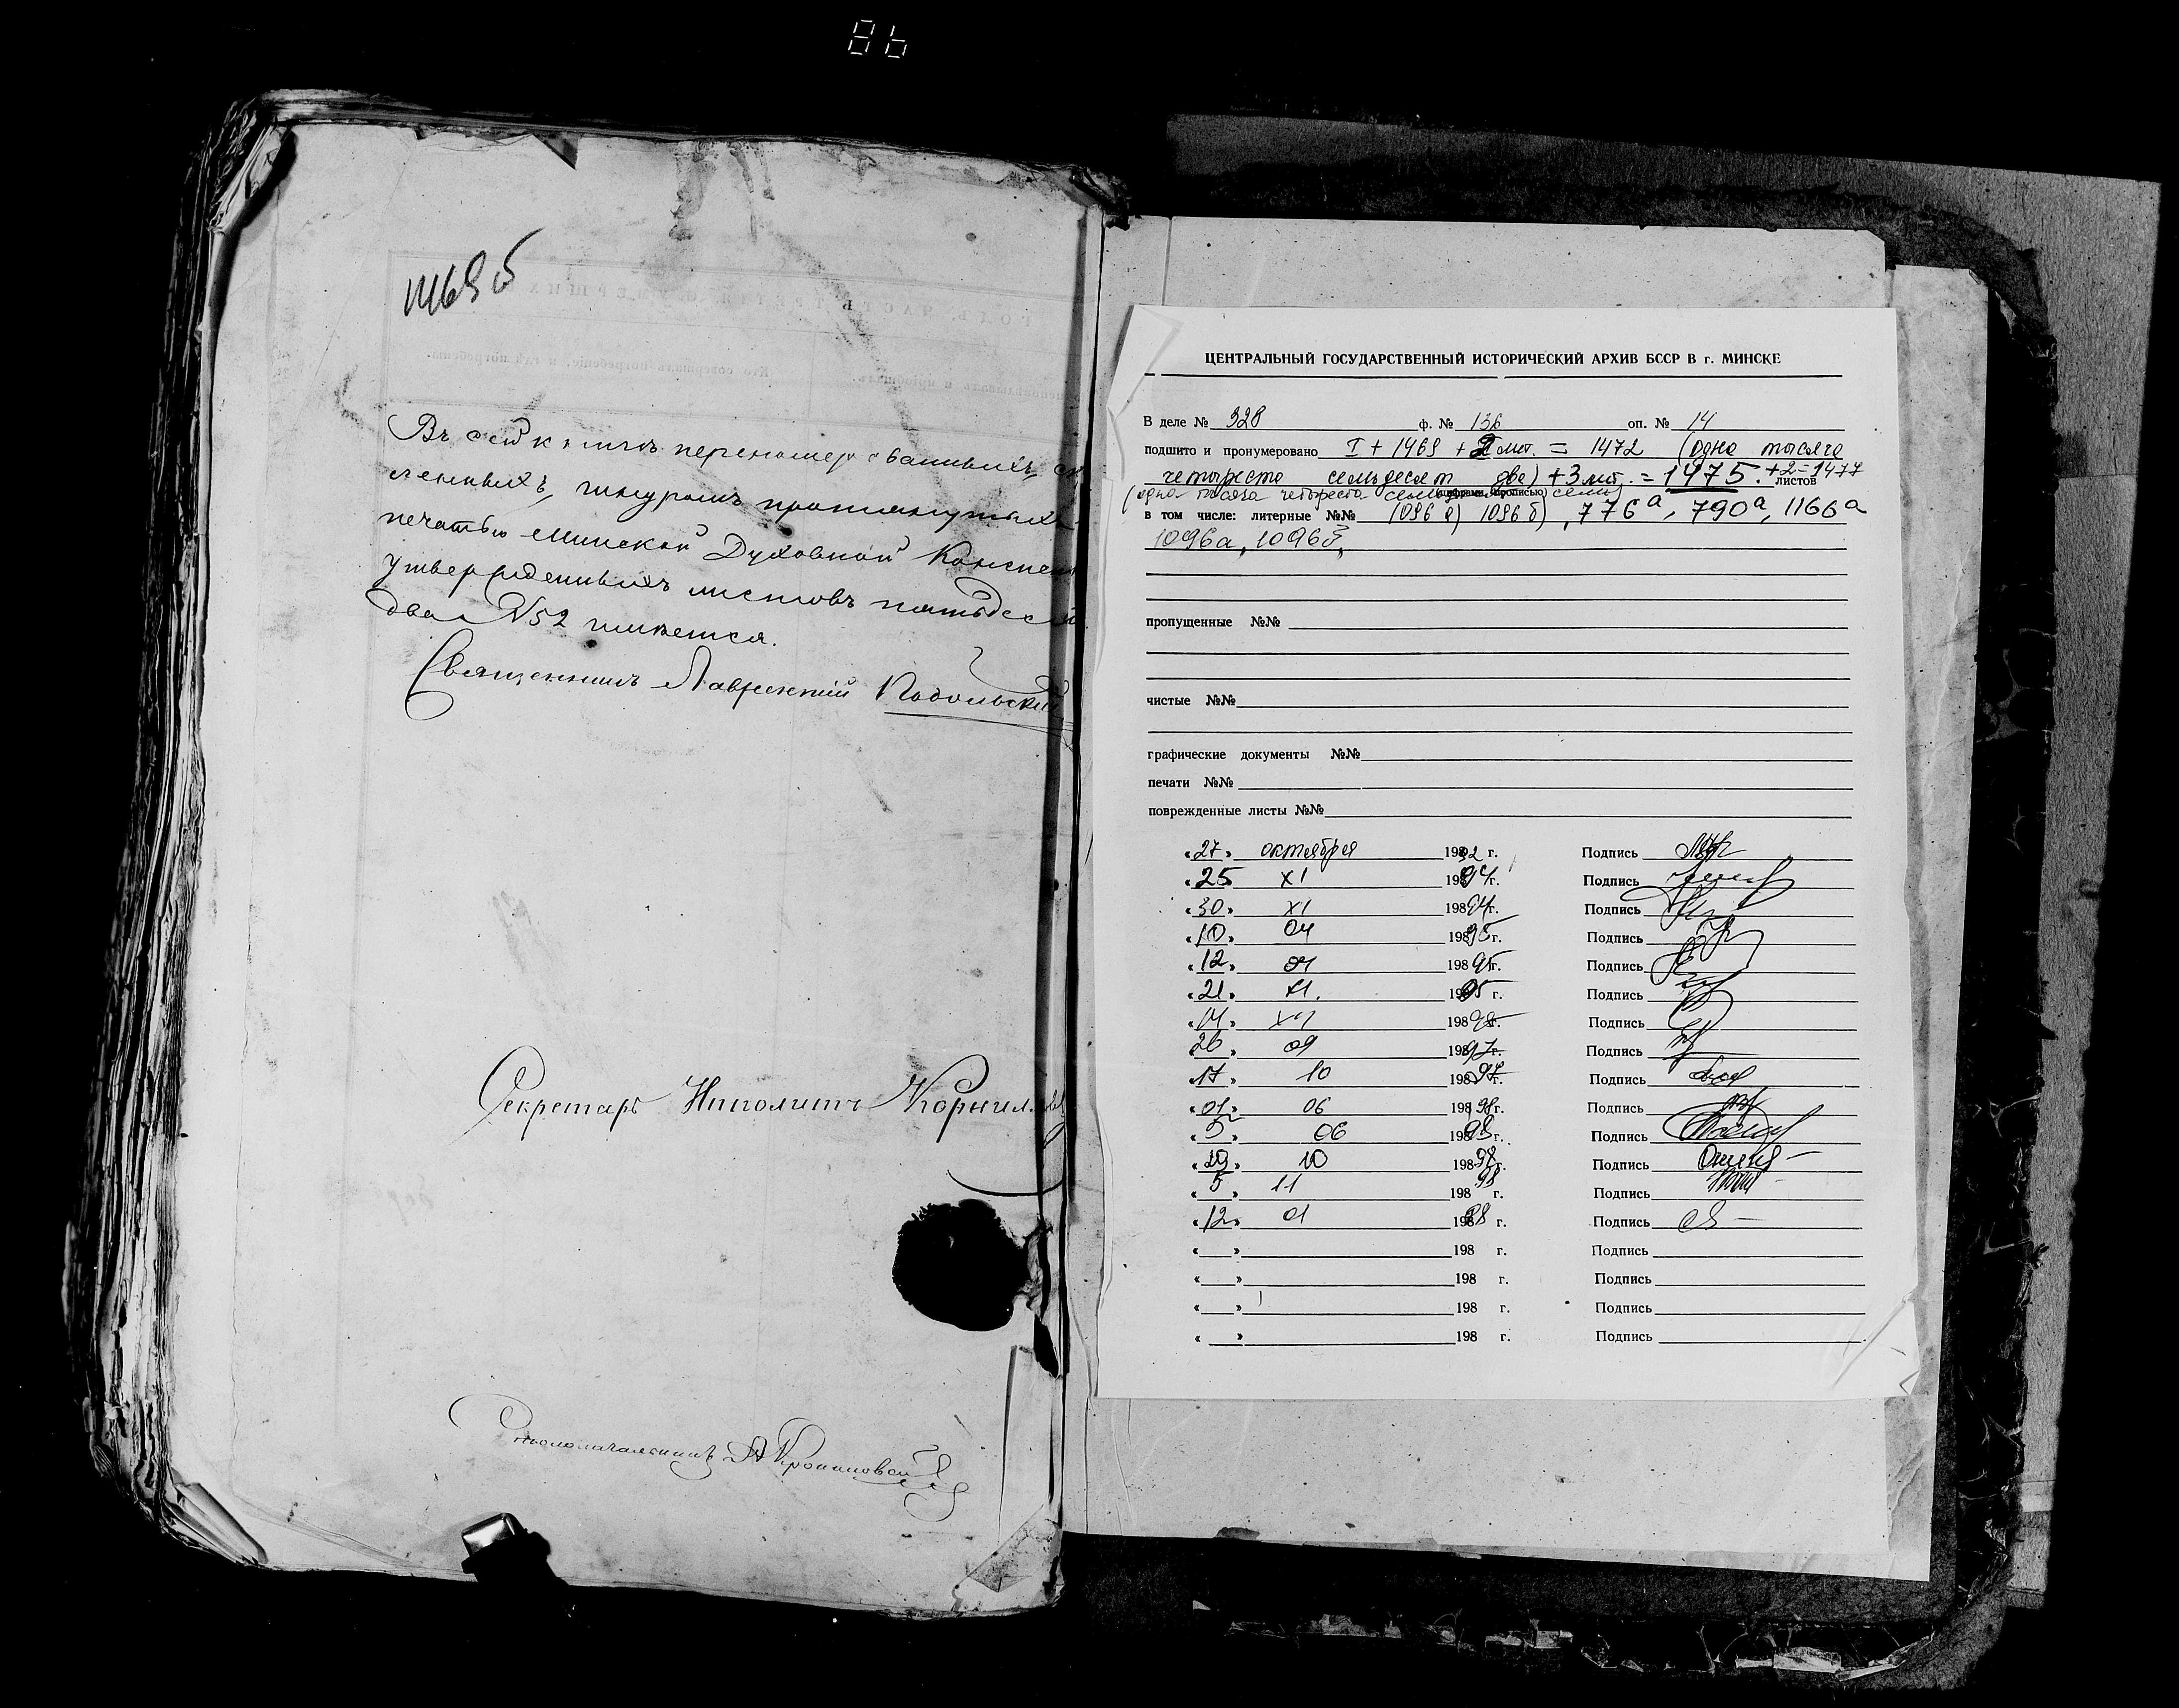 86
Въ сей книгѣ перенумерованныхъ, ск
ленныхъ, шнуромъ протянутыхъ
печатью Минской Духовной Консис
утвержденныхъ листовъ пятьдесят
два №52 имѣется.
Священникъ Лаврентій Подольскій
Секретарь Ипполитъ Корнил
Столоначальникъ
ЦЕНТРАЛЬНЫЙ ГОСУДАРСТВЕННЫЙ ИСТОРИЧЕСКИЙ АРХИВ БССР В г. МИНСКЕ
В деле № 328 ф. № 136 оп. № 14
подшито и пронумеровано I + 1469 + 2 лит. = 1472 (одна тысяча
четыреста семьдесят два) + 3 лит. = 1475. +2=1477
листов
(одна тысяча четыреста семьдесят семь)
(цифрами, прописью)
в том числе: литерные №№ (1096 а) 1096 б), 776а, 790а, 1166а
1096а, 1096б,
пропущенные №№
чистые №№
графические документы №№
печати №№
поврежденные листы №№
«27» октября 1992 г. Подпись
«25» XI 19894 г. Подпись
«30» XI 19894 г. Подпись
«10» 04 19895 г. Подпись
«12» 04 19895 г. Подпись
«21» XI. 1995 г. Подпись
«14» XII 198 г. Подпись
«26» 09 19897 г. Подпись
«17» 10 19897 г. Подпись
«01» 06 19898 г. Подпись
«5» 06 19898 г. Подпись
«29» 10 19898 г. Подпись
«5» 11 19898 г. Подпись
«12» 01 198 г. Подпись
« » 198 г. Подпись
« » 198 г. Подпись
« » 198 г. Подпись
« » 198 г. Подпись